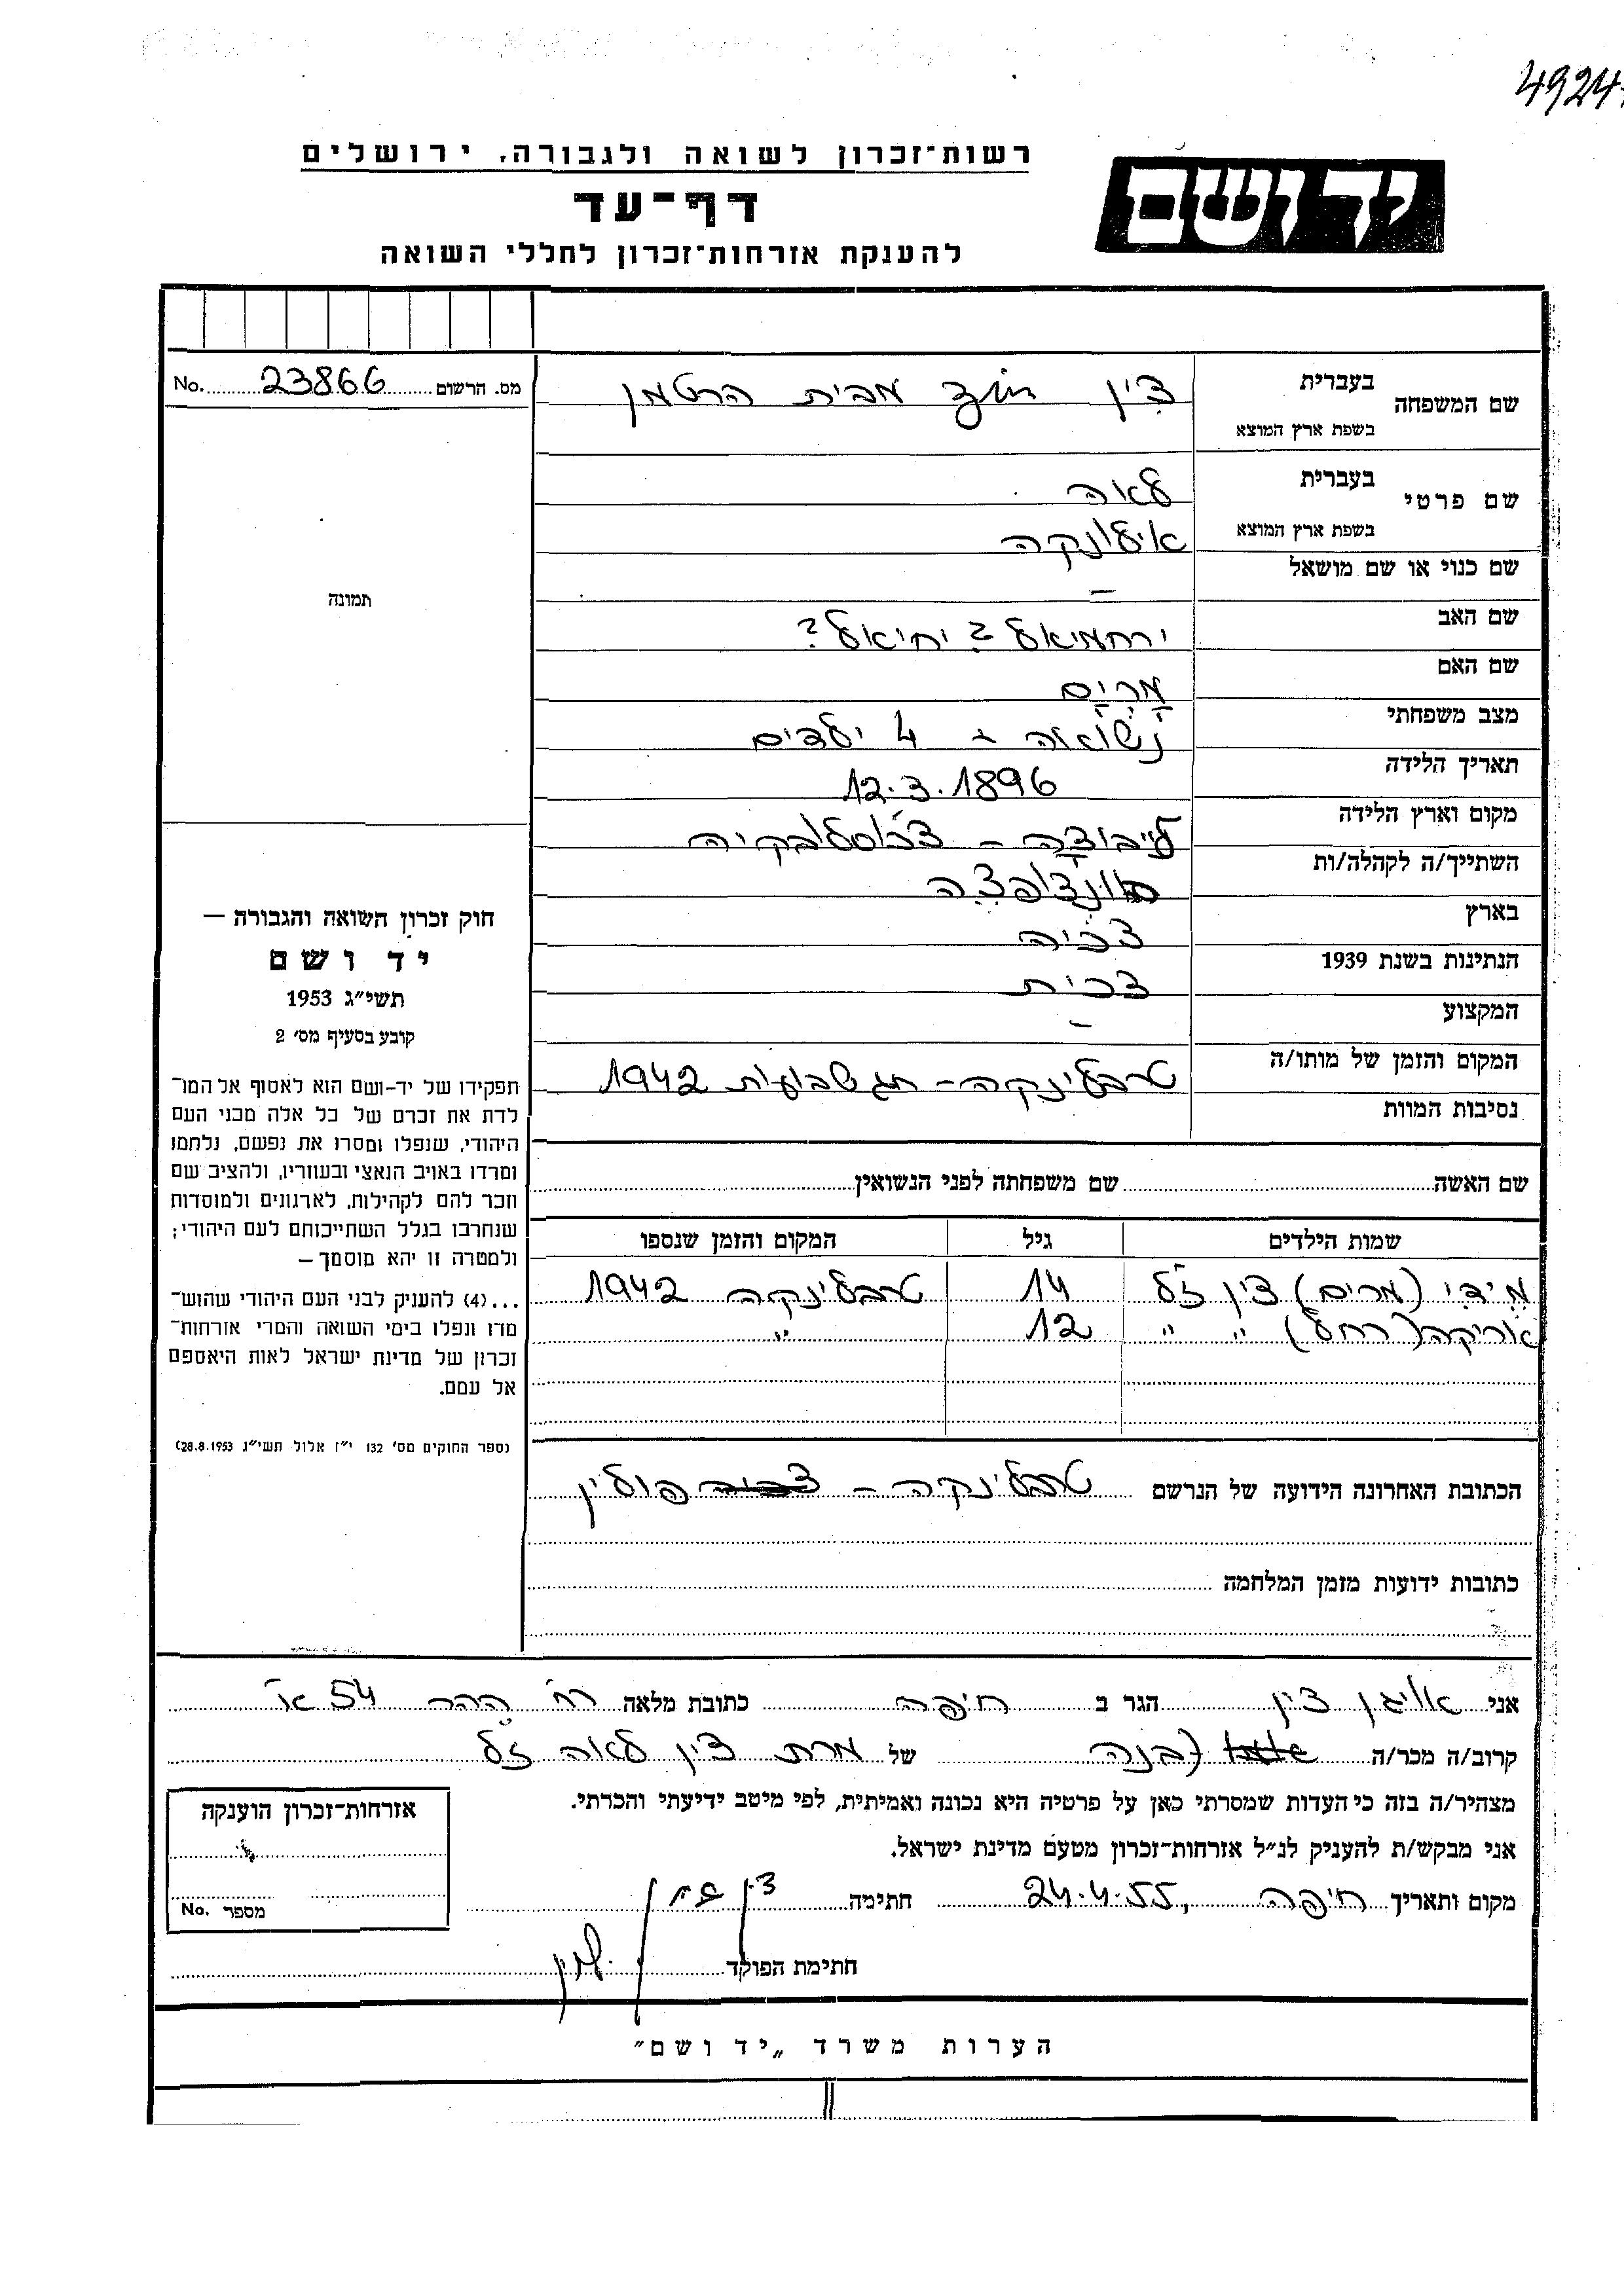 4924
רשות־זכרון לשואה ולגבורה, ירושלים
יד ושם
דף־עד
להענקת אזרחות־זכרון לחללי השואה
מס. הרשום 23866 No.
שם המשפחה
בעברית
צין מבית הרטמן
בשפת ארץ המוצא
שם פרטי
בעברית לאה
בשפת ארץ המוצא אילונקה
שם כנוי או שם מושאל –
שם האב ירחמיאל ? יחיאל ?
שם האם מרים
מצב משפחתי נשואה + 4 ילדים
תאריך הלידה 12.3.1896
מקום וארץ הלידה
השתייך/ה לקהלה/ות
בארץ צ'כיה
הנתינות בשנת 1939 צ'כית
המקצוע –
המקום והזמן של מותו/ה טרבלינקה – חג שבועות 1942
נסיבות המוות
שם האשה שם משפחתה לפני הנשואין
שמות הילדים גיל המקום והזמן שנספו
מידי (מרים) צין ז"ל 14 טרבלינקה 1942
אוריקה (רחל) " " 12 "
הכתובת האחרונה הידועה של הנרשם טרבלינקה – פולין
כתובות ידועות מזמן המלחמה
תמונה
חוק זכרון השואה והגבורה —
יד ושם
תשי״ג 1953
קובע בסעיף מס׳ 2
תפקידו של יד-ושם הוא לאסוף אל המו־
לדת את זכרם של כל אלה מבני העם
היהודי, שנפלו ומסרו את נפשם, נלחמו
ומרדו באויב הנאצי ובעוזריו, ולהציב שם
וזכר להם לקהילות, לארגונים ולמוסדות
שנחרבו בגלל השתייכותם לעם היהודי;
ולמטרה זו יהא מוסמך —
...(4) להעניק לבני העם היהודי שהוש־
מדו ונפלו בימי השואה והמרי אזרחות־
זכרון של מדינת ישראל לאות היאספם
אל עמם.
(ספר החוקים מס׳ 132 י״ז אלול תשי״ג 28.8.1953)
אני צין הגר ב חיפה כתובת מלאה רח' ההר 54 א'
קרוב/ה מכר/ה (בנה של מרת צין לאה ז"ל
מצהיר/ה בזה כי העדות שמסרתי כאן על פרטיה היא נכונה ואמיתית, לפי מיטב ידיעתי והכרתי.
אני מבקש/ת להעניק לנ״ל אזרחות־זכרון מטעם מדינת ישראל.
מקום ותאריך חיפה, 24.4.55 חתימה
חתימת הפוקד
אזרחות־זכרון הוענקה
מספר No.
הערות משרד „יד ושם״